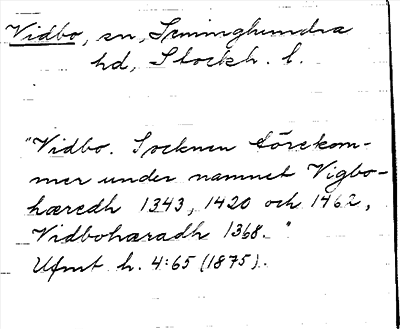 Vidbo, sn, Srminghundra
hd, Stockh. l.
"Vidbo. Socknen förekom-
mer under namnet Vigbo-
hæredh 1343, 1420 och 1462,
Vidbohæradh 1368."
Ufmt h. 4:65 (1875).